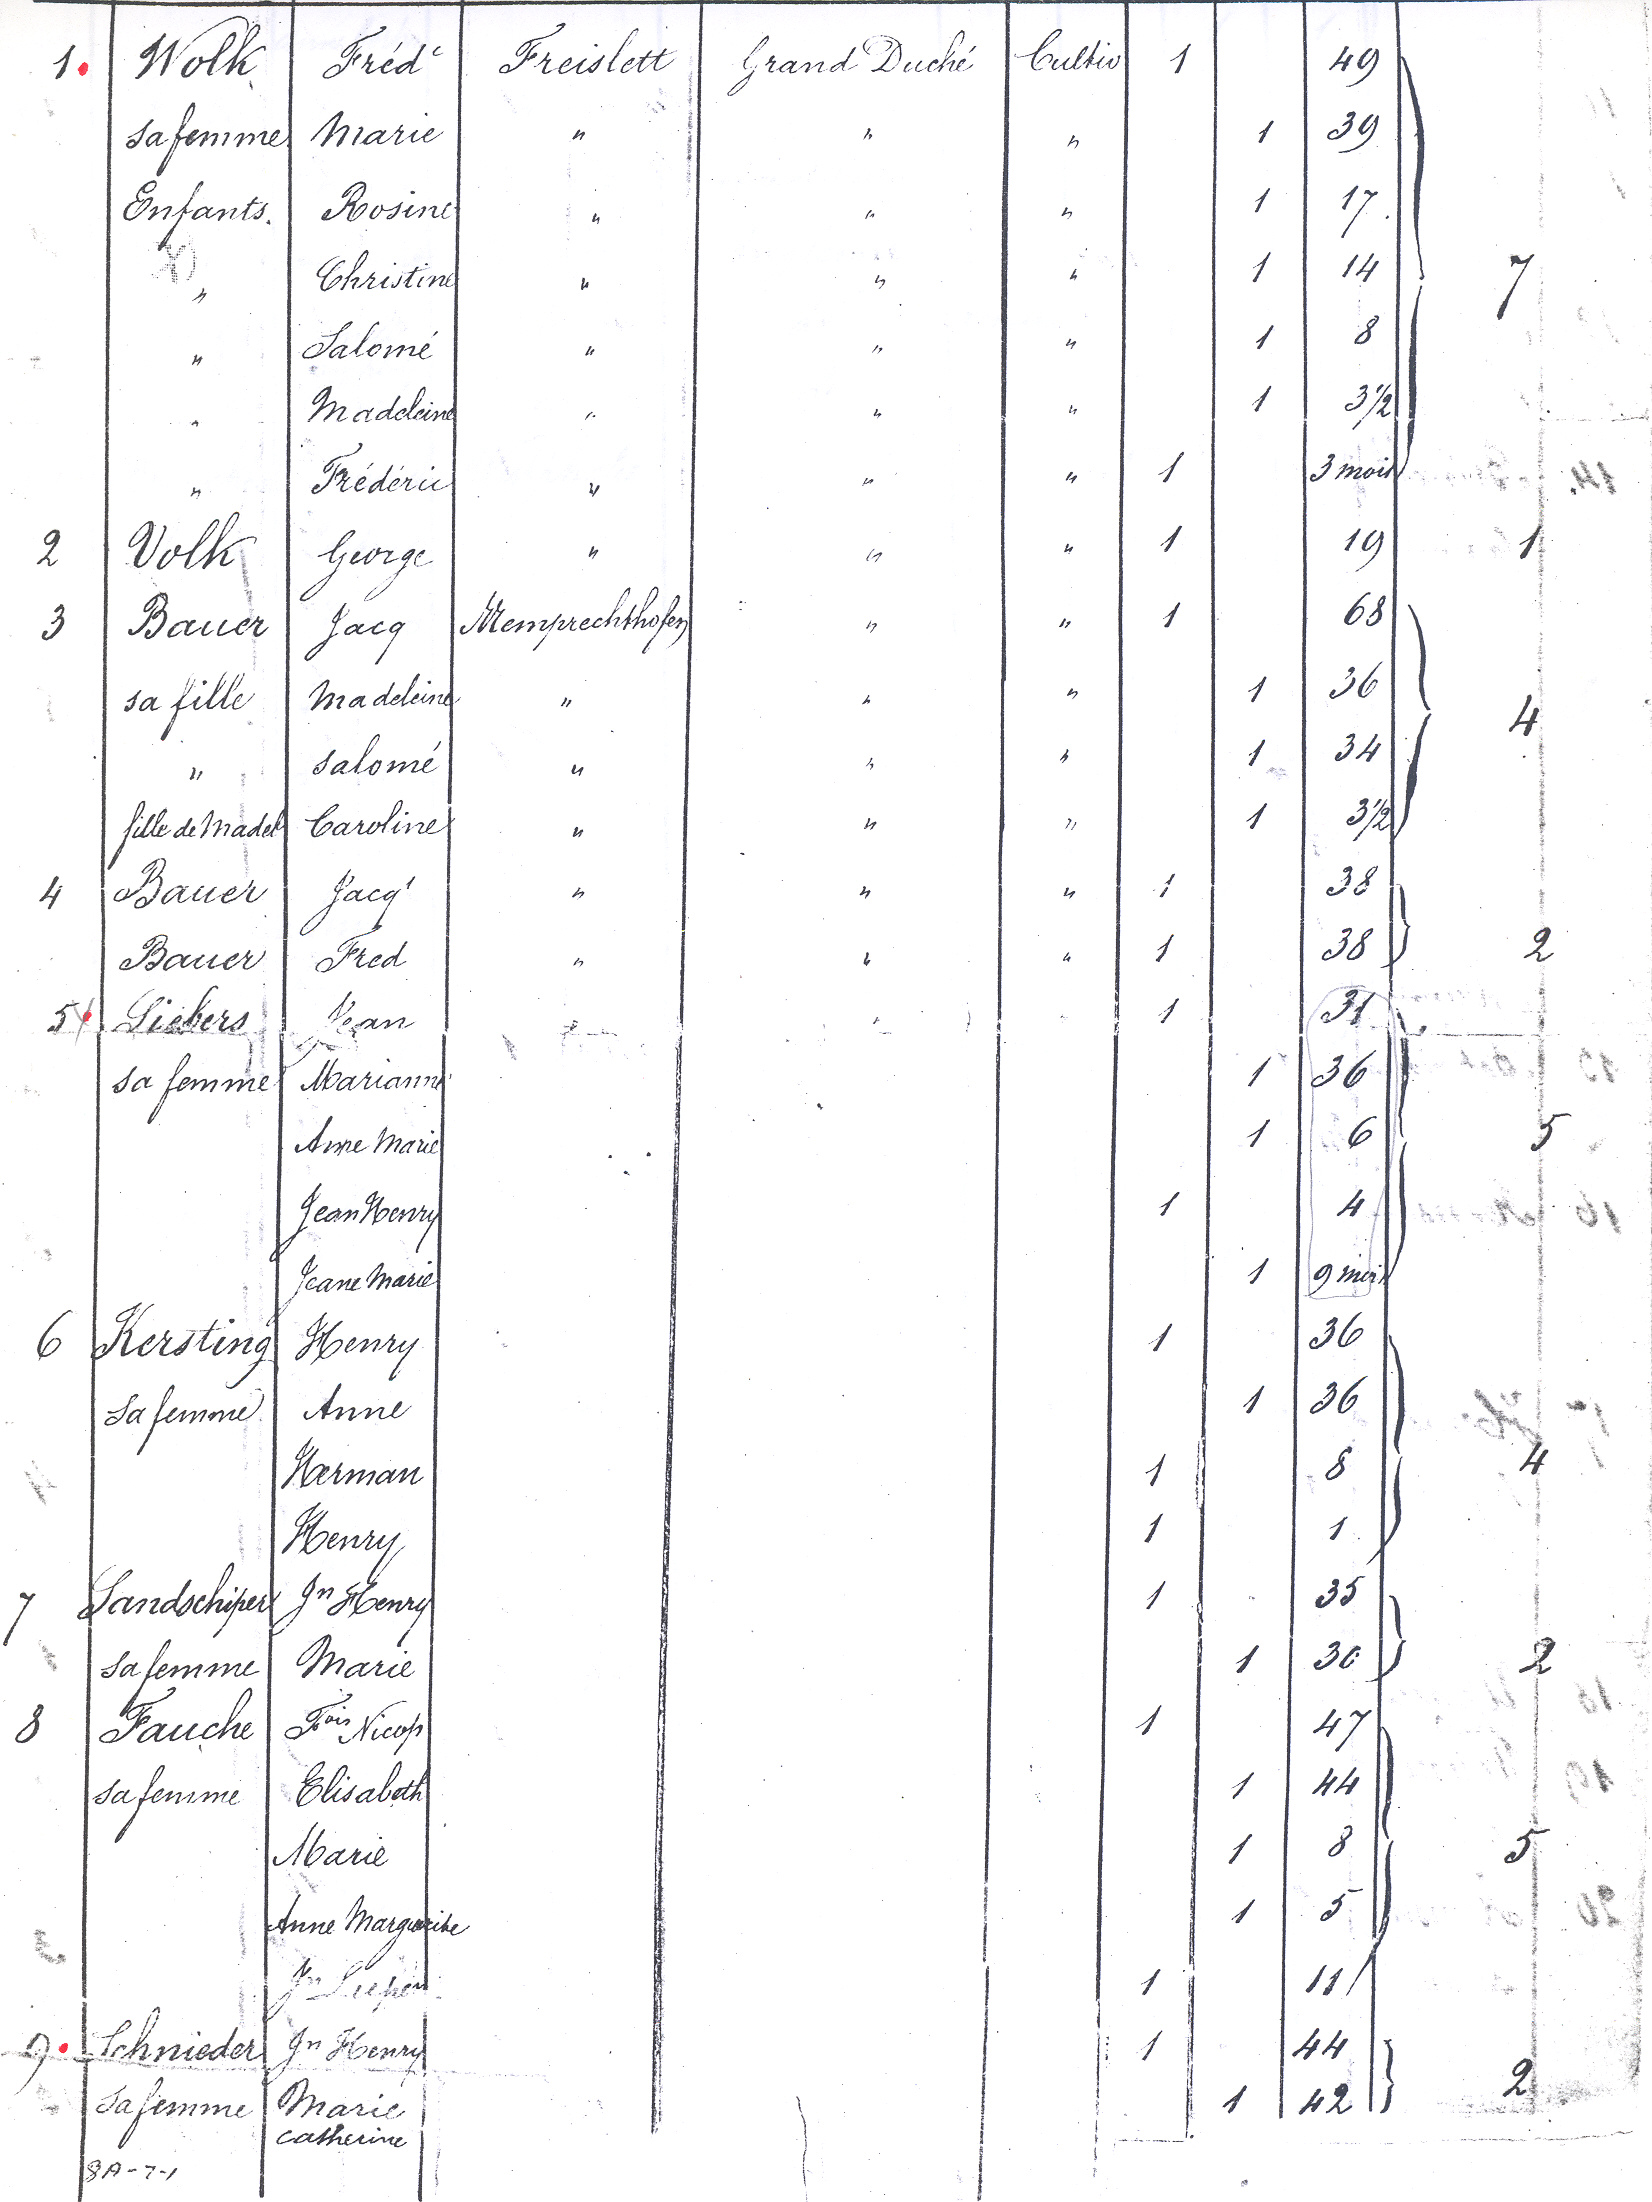 1. Wolk Fréd^c Freislett Grand Duché Cultiv 1 49
sa femme Marie " " " 1 39
Enfants. Rosine " " " 1 17.
" Christine " " " 1 14 7
" Salomé " " " 1 8
" Madeleine " " " 1 3 1/2
" Frédéric " " " 1 3 mois
2 Volk George " " " 1 19 1
3 Bauer Jacq Memprechthofen " " 1 68
sa fille Madeleine " " " 1 36 4
" Salomé " " " 1 34
fille de Madel Caroline " " " 1 3 1/2
4 Bauer Jacq " " " 1 38
Bauer Fred " " " 1 38 2
5 Siebers Jean 1 31
sa femme Marianne 1 36
Anne Marie 1 6 5
Jean Henry 1 4
Jeane Marie 1 9 mois
6 Kersting Henry 1 36
sa femme Anne 1 36
Herman 1 8 4
Henry 1 1
7 Sandschiper Jn Henry 1 35
sa femme Marie 1 30 2
8 Fauche Fois Nicop 1 47
sa femme Elisabeth 1 44
Marie 1 8 5
Anne Marguerite 1 5
Jn 1 11
9. Schnieder Jn Henry 1 44
sa femme Marie 1 42 2
catherine
8A-7-1